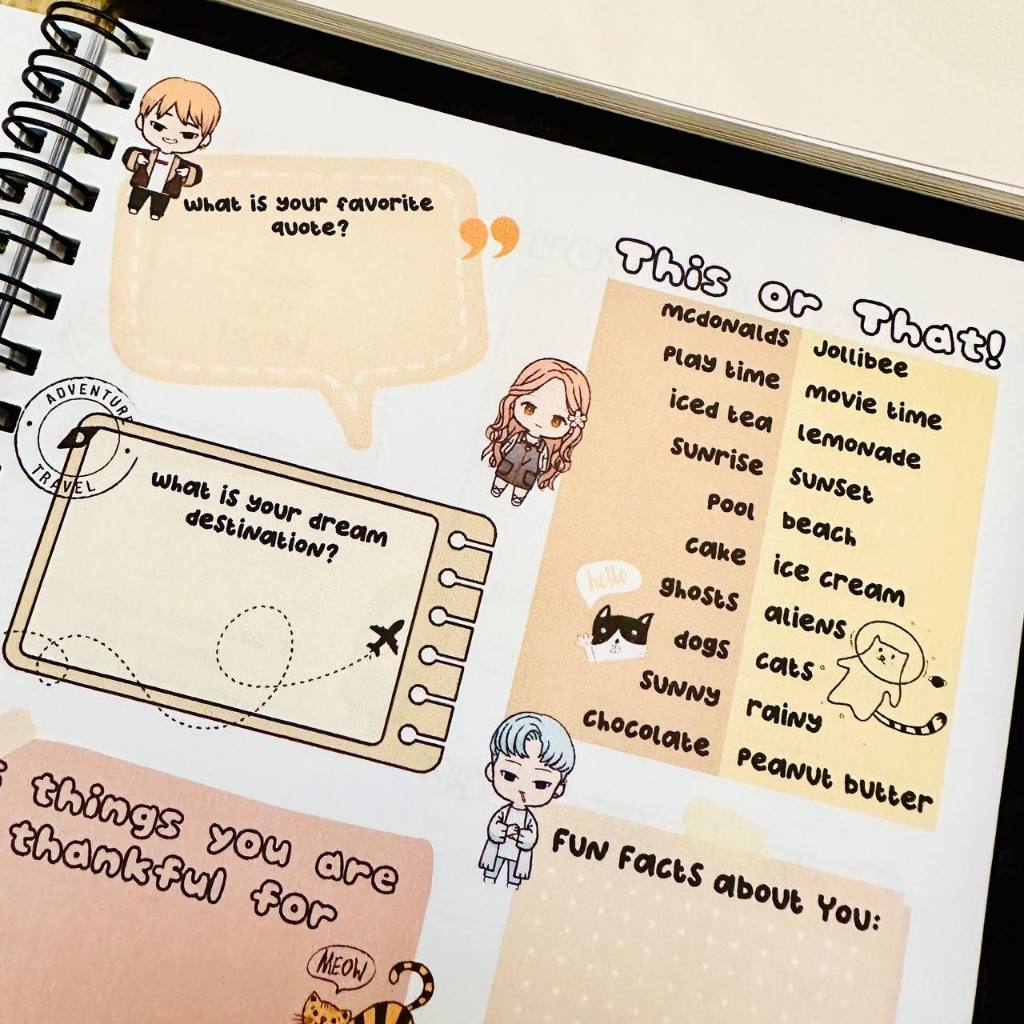 What is your favorite
quote?
”
This or That!
mcdonalds Jollibee
Play time movie time
iced tea Lemonade
sunrise sunset
Pool beach
cake ice cream
ghosts aliens
hello
dogs cats
sunny rainy
chocolate Peanut butter
ADVENTUR
TRAVEL
What is your dream
destination?
things you are
thankful for
MEOW
Fun Facts about You: